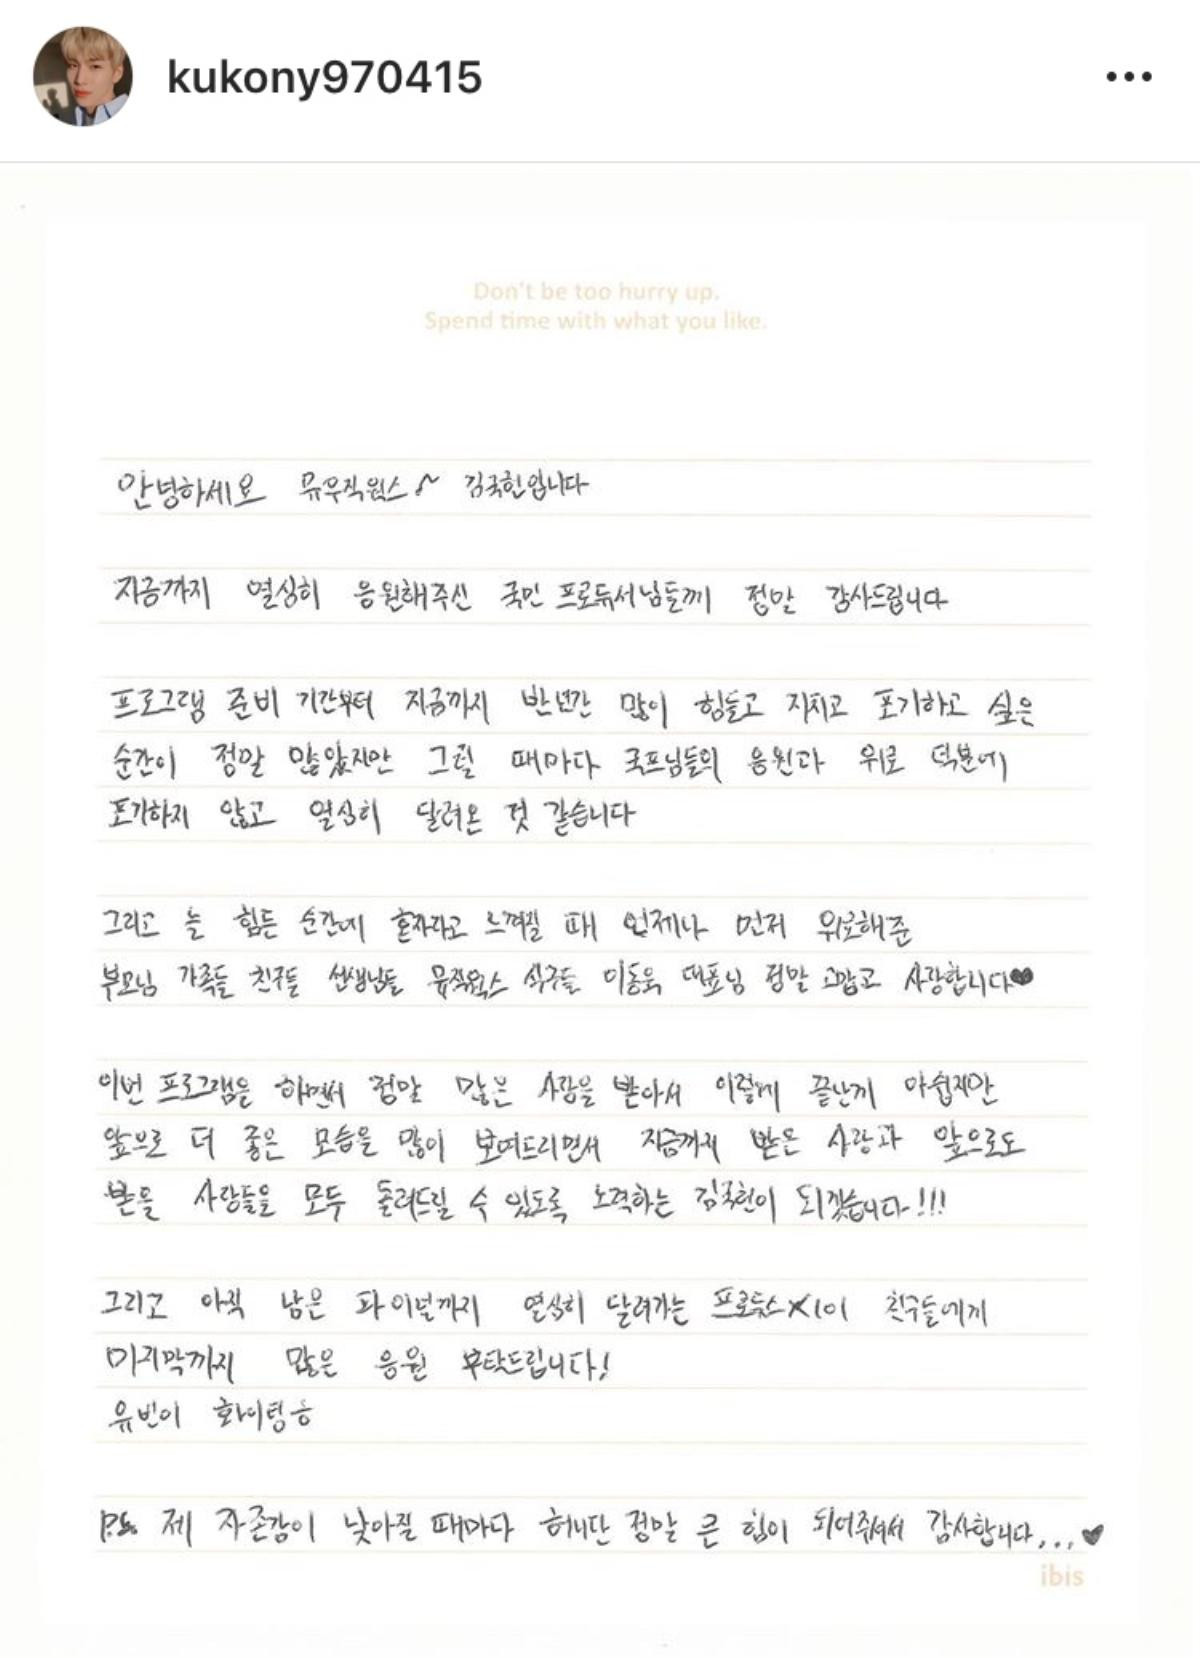 kukony970415
Don't be too hurry up.
Spend time with what you like.
안녕하세요 뮤우직웍스~ 김국헌입니다
지금까지 열심히 응원해주신 국민 프로듀서님들께 정말 감사드립니다
프로그램 준비 기간부터 지금까지 반년간 많이 힘들고 지치고 포기하고 싶은
순간이 정말 많았지만 그럴 때마다 국프님들의 응원과 위로 덕분에
포기하지 않고 열심히 달려온 것 같습니다
그리고 늘 힘든 순간에 혼자라고 느껴질 때 언제나 먼저 위로해준
부모님 가족들 친구들 선생님들 뮤직웍스 식구들 이동욱 대표님 정말 고맙고 사랑합니다♥
이번 프로그램을 하면서 정말 많은 사랑을 받아서 이렇게 끝난게 아쉽지만
앞으로 더 좋은 모습을 많이 보여드리면서 지금까지 받은 사랑과 앞으로도
받을 사랑들을 모두 돌려드릴 수 있도록 노력하는 김국헌이 되겠습니다!!!
그리고 아직 남은 파이널까지 열심히 달려가는 프로듀스X101 친구들에게
마지막까지 많은 응원 부탁드립니다!
유빈이 화이팅ㅎ
P.S. 제 자존감이 낮아질 때마다 허니단 정말 큰 힘이 되어주셔서 감사합니다...♥
ibis